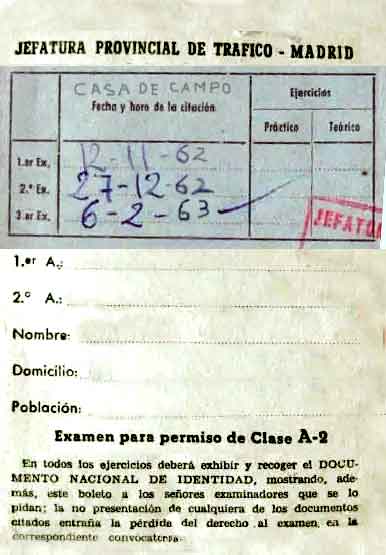 JEFATURA PROVINCIAL DE TRAFICO - MADRID
CASA DE CAMPO
Fecha y hora de la citación
Ejercicios
Práctico Teórico
1.er Ex. 12-11-62
2.º Ex. 27-12-62
3.er Ex. 6-2-63
JEFATU
1.er A.:
2.º A.:
Nombre:
Domicilio:
Población:
Examen para permiso de Clase A-2
En todos los ejercicios deberá exhibir y recoger el DOCU-
MENTO NACIONAL DE IDENTIDAD, mostrando, ade-
más, este boleto a los señores examinadores que se lo
pidan; la no presentación de cualquiera de los documentos
citados entraña la pérdida del derecho al examen en la
correspondiente convocatoria.